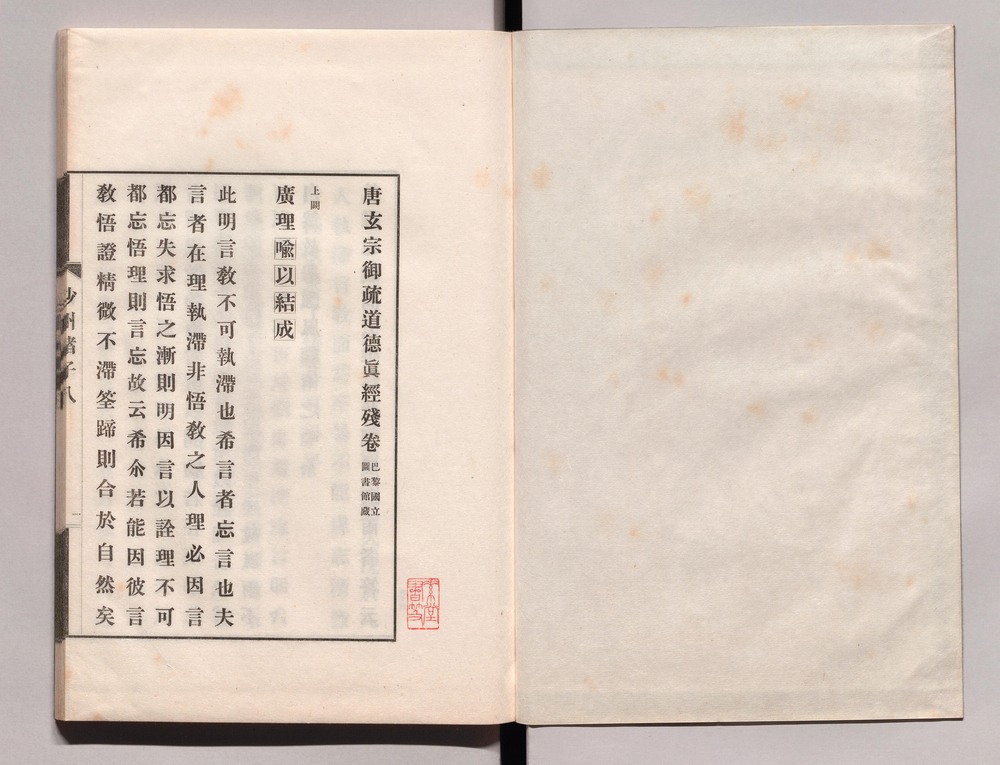 唐玄宗御疏道德眞經殘卷 巴黎國立
圖書館藏
上闕
廣理喩以結成
此明言敎不可執滯也希言者忘言也夫
言者在理執滯非悟敎之人理必因言
都忘失求悟之漸則明因言以詮理不可
都忘悟理則言忘故云希尒若能因彼言
敎悟證精微不滯筌蹄則合於自然矣
沙州諸子八